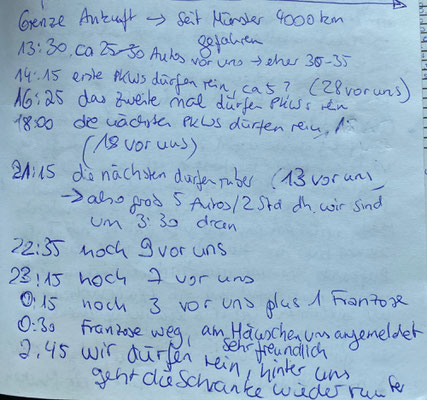 Grenze Ankunft → Seit Münster 4000 km
gefahren
13:30 ca 25-30 Autos vor uns → eher 30-35
14:15 erste PKWs dürfen rein, ca 5 ? (28 vor uns)
16:25 das zweite mal dürfen PKWs rein
18:00 die nächsten PKWs dürfen rein,
(18 vor uns)
21:15 die nächsten dürfen rüber (13 vor uns)
→ also grob 5 Autos/2 Std dh. wir sind
um 3:30 dran
22:35 noch 9 vor uns
23:15 noch 7 vor uns
0:15 noch 3 vor uns plus 1 Franzose
0:30 Franzose weg, am Häuschen uns angemeldet
sehr freundlich
2.45 wir dürfen rein, hinter uns
geht die Schranke wieder runter